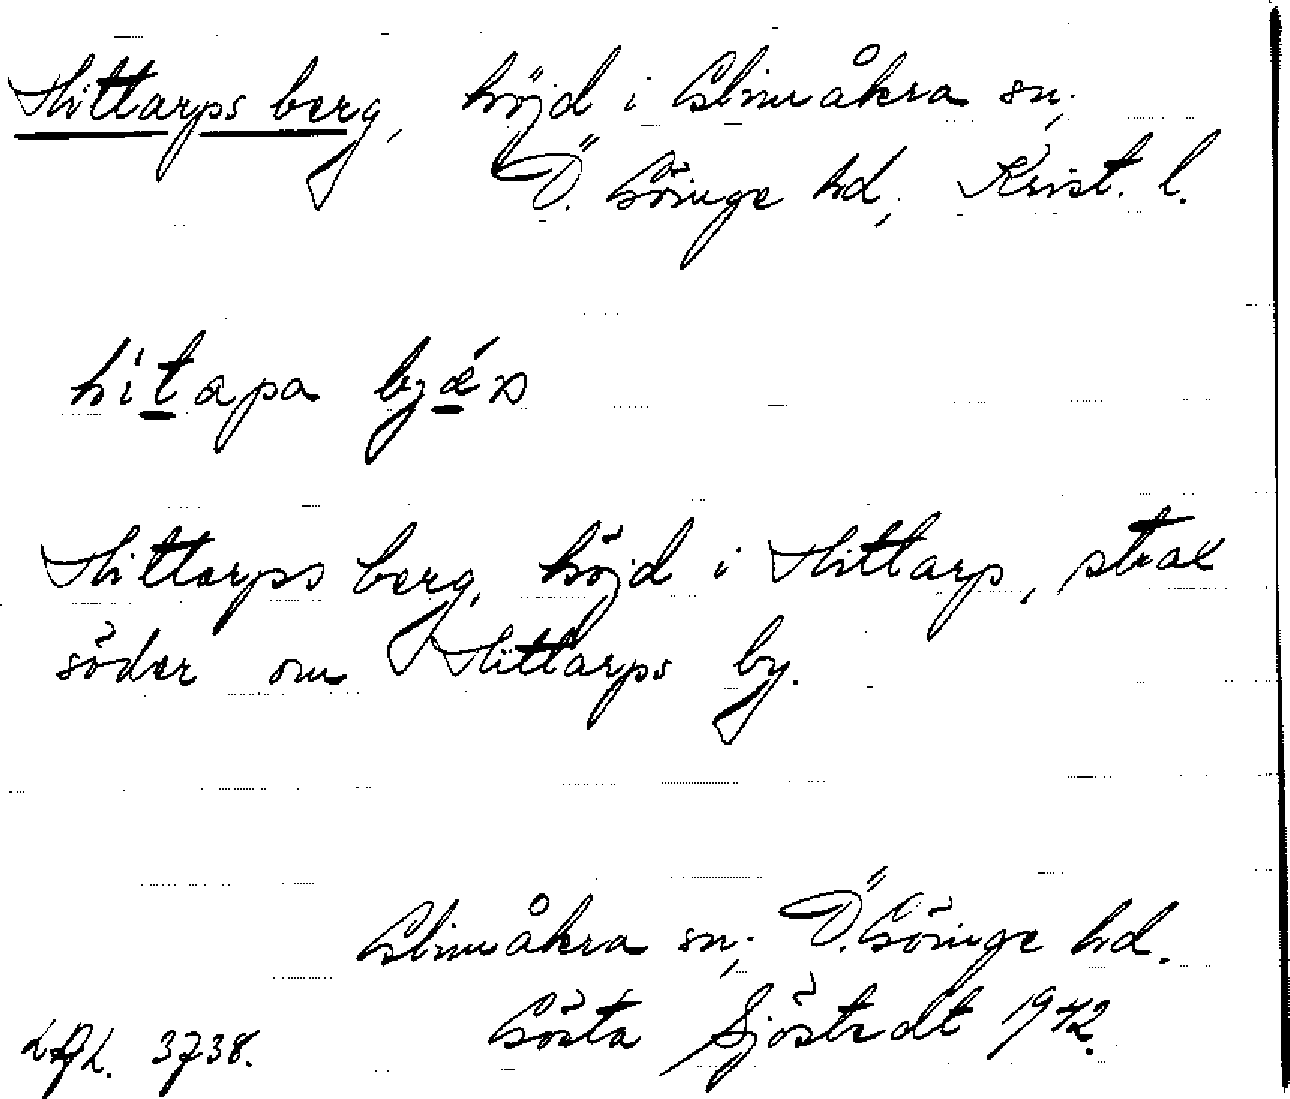 Hittarps berg, höjd i Glimåkra sn,
Ö. Göinge hd, Krist. l.
hitapa
Hittarps berg, höjd i Hittarp, strax
söder om Hittarps by.
Glimåkra sn, Ö. Göinge hd.
Gösta Sjöstedt 1942.
3738.